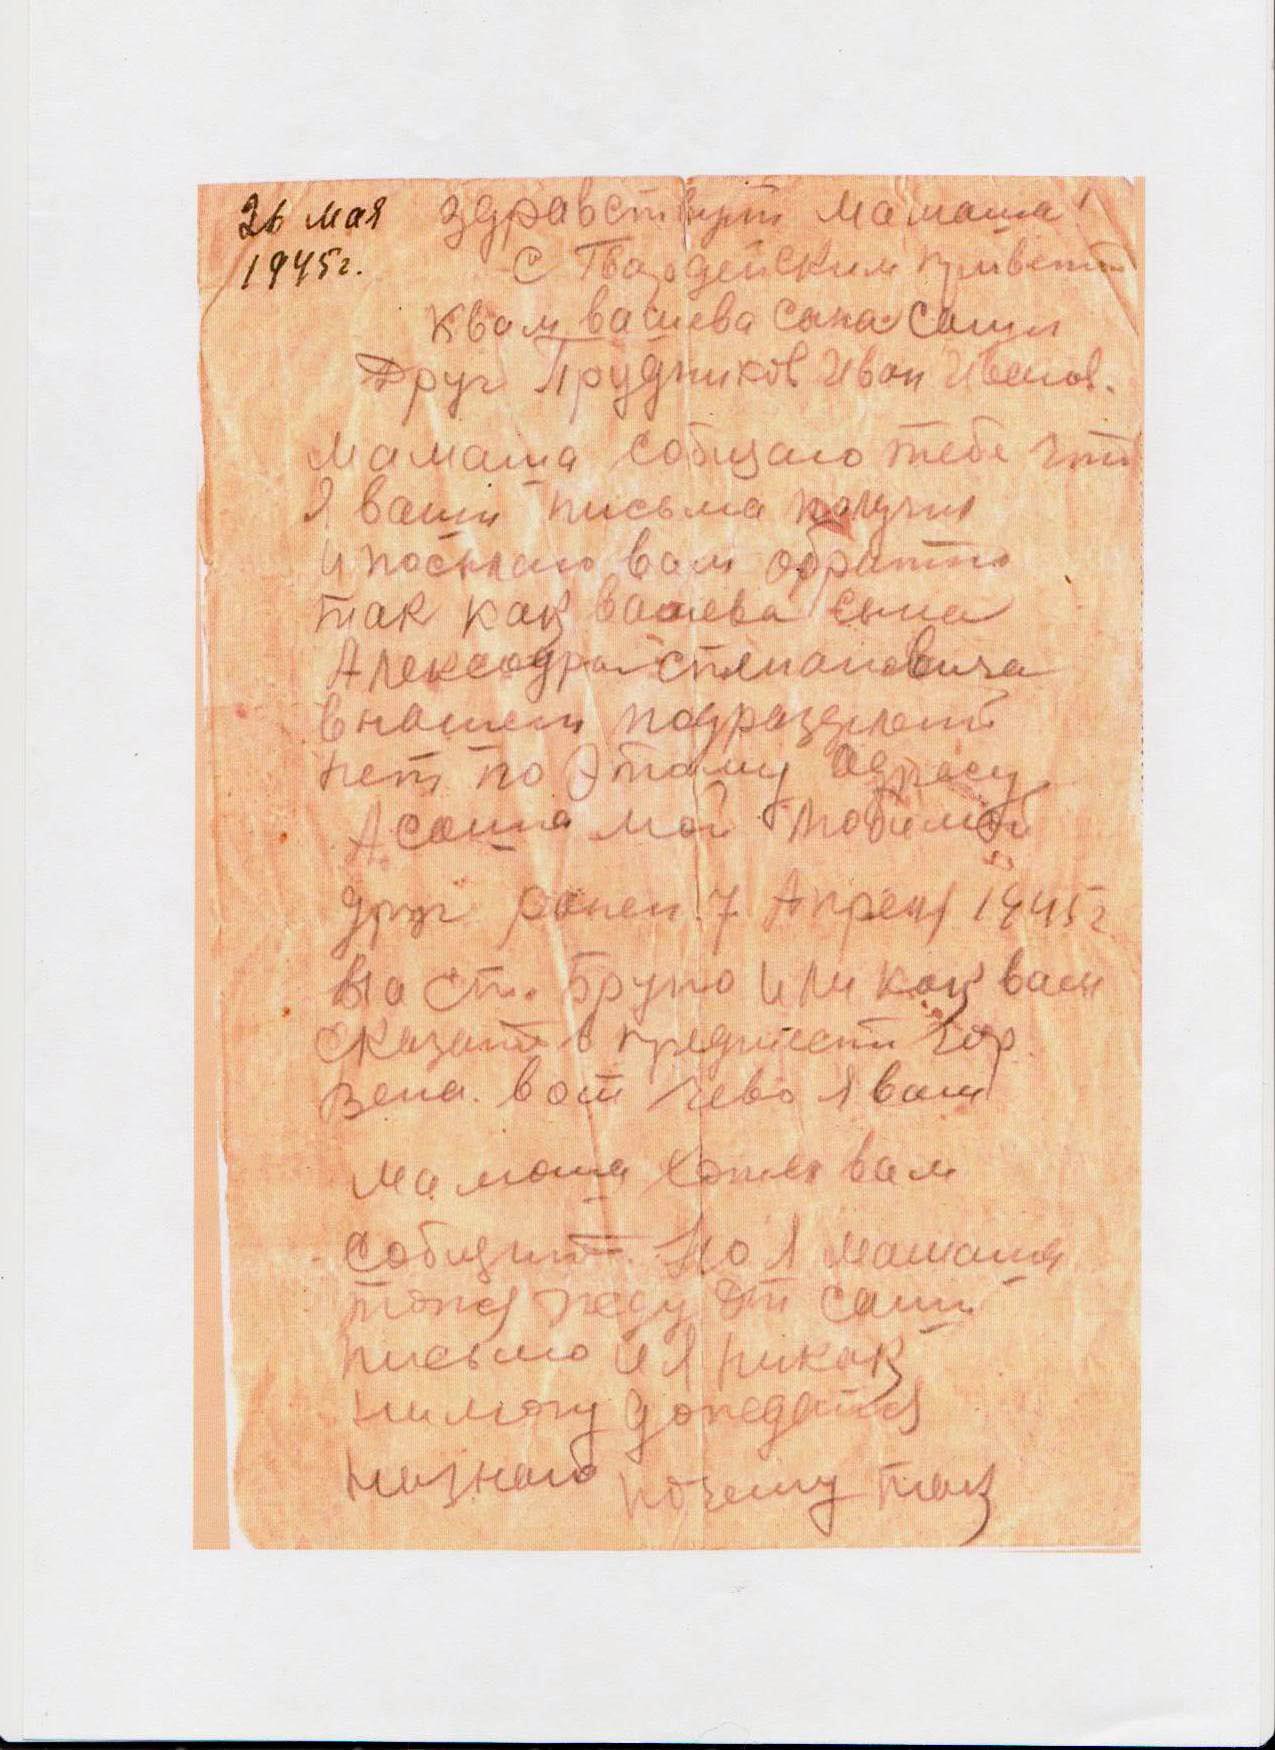 26 мая
1945г.
Здравствуйте Мамаша!
С Гвардейским приветом
К вам вашева сына Саши
Друг Прудников Иван Иванов.
Мамаша собщаю тебе что
Я ваши письма получил
И посылаю вам обратно
так как вашева сына
Александра
в нашем
нет по Этому Адресу
А Саша мой любимой
друг ранен 7 Апреля 1945г
На ст. Бруно Или как вам
сказать в гор.
Вена. вот чево я вам
мамаша хотел вам
собщить. Но Я мамаша
тоже жду От Саши
письмо И Я никак
нимогу дождатся
низнаю почему так